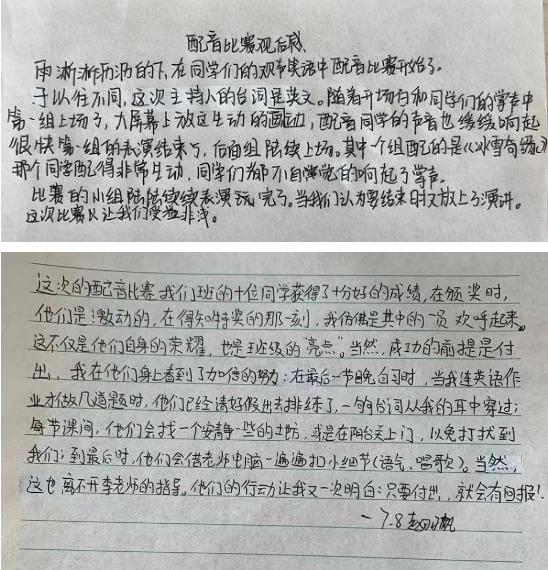 配音比赛观后感
雨淅淅沥沥的下,在同学们的欢声笑语中配音比赛开始了。
于以往不同,这次主持人的台词是英文。随着开场白和同学们的掌声中
第一组上场了,大屏幕上放这生动的画面,配音同学的声音也缓缓响起
很快第一组的表演结束了,后面组陆续上场。其中一个组配的是《冰雪奇缘》
那个同学配得非常生动,同学们都不自觉的响起了掌声。
比赛的小组陆陆续续表演完了。当我们认为要结束时又放上了演讲。
这次比赛让我们受益非浅。
这次的配音比赛我们班的十位同学获得了十分好的成绩,在颁奖时,
他们是激动的,在得知特奖的那一刻,我仿佛是其中的一员欢呼起来。
这不仅是他们自身的荣耀,也是班级的“亮点”。当然,成功的前提是付
出,我在他们身上看到了加倍的努力:在最后一节晚自习时,当我连英语作
业才做几道题时,他们已经请好假出去排练了,一句句台词从我的耳中穿过;
每节课间,他们会找一个安静一些的地方,或是在阳台关上门,以免打扰到
我们;到最后时,他们会借老师电脑一遍遍扣小细节(语气、唱歌)。当然,
这也离不开李老师的指导。他们的行动让我又一次明白:只要付出,就会有回报!
一7.8赵